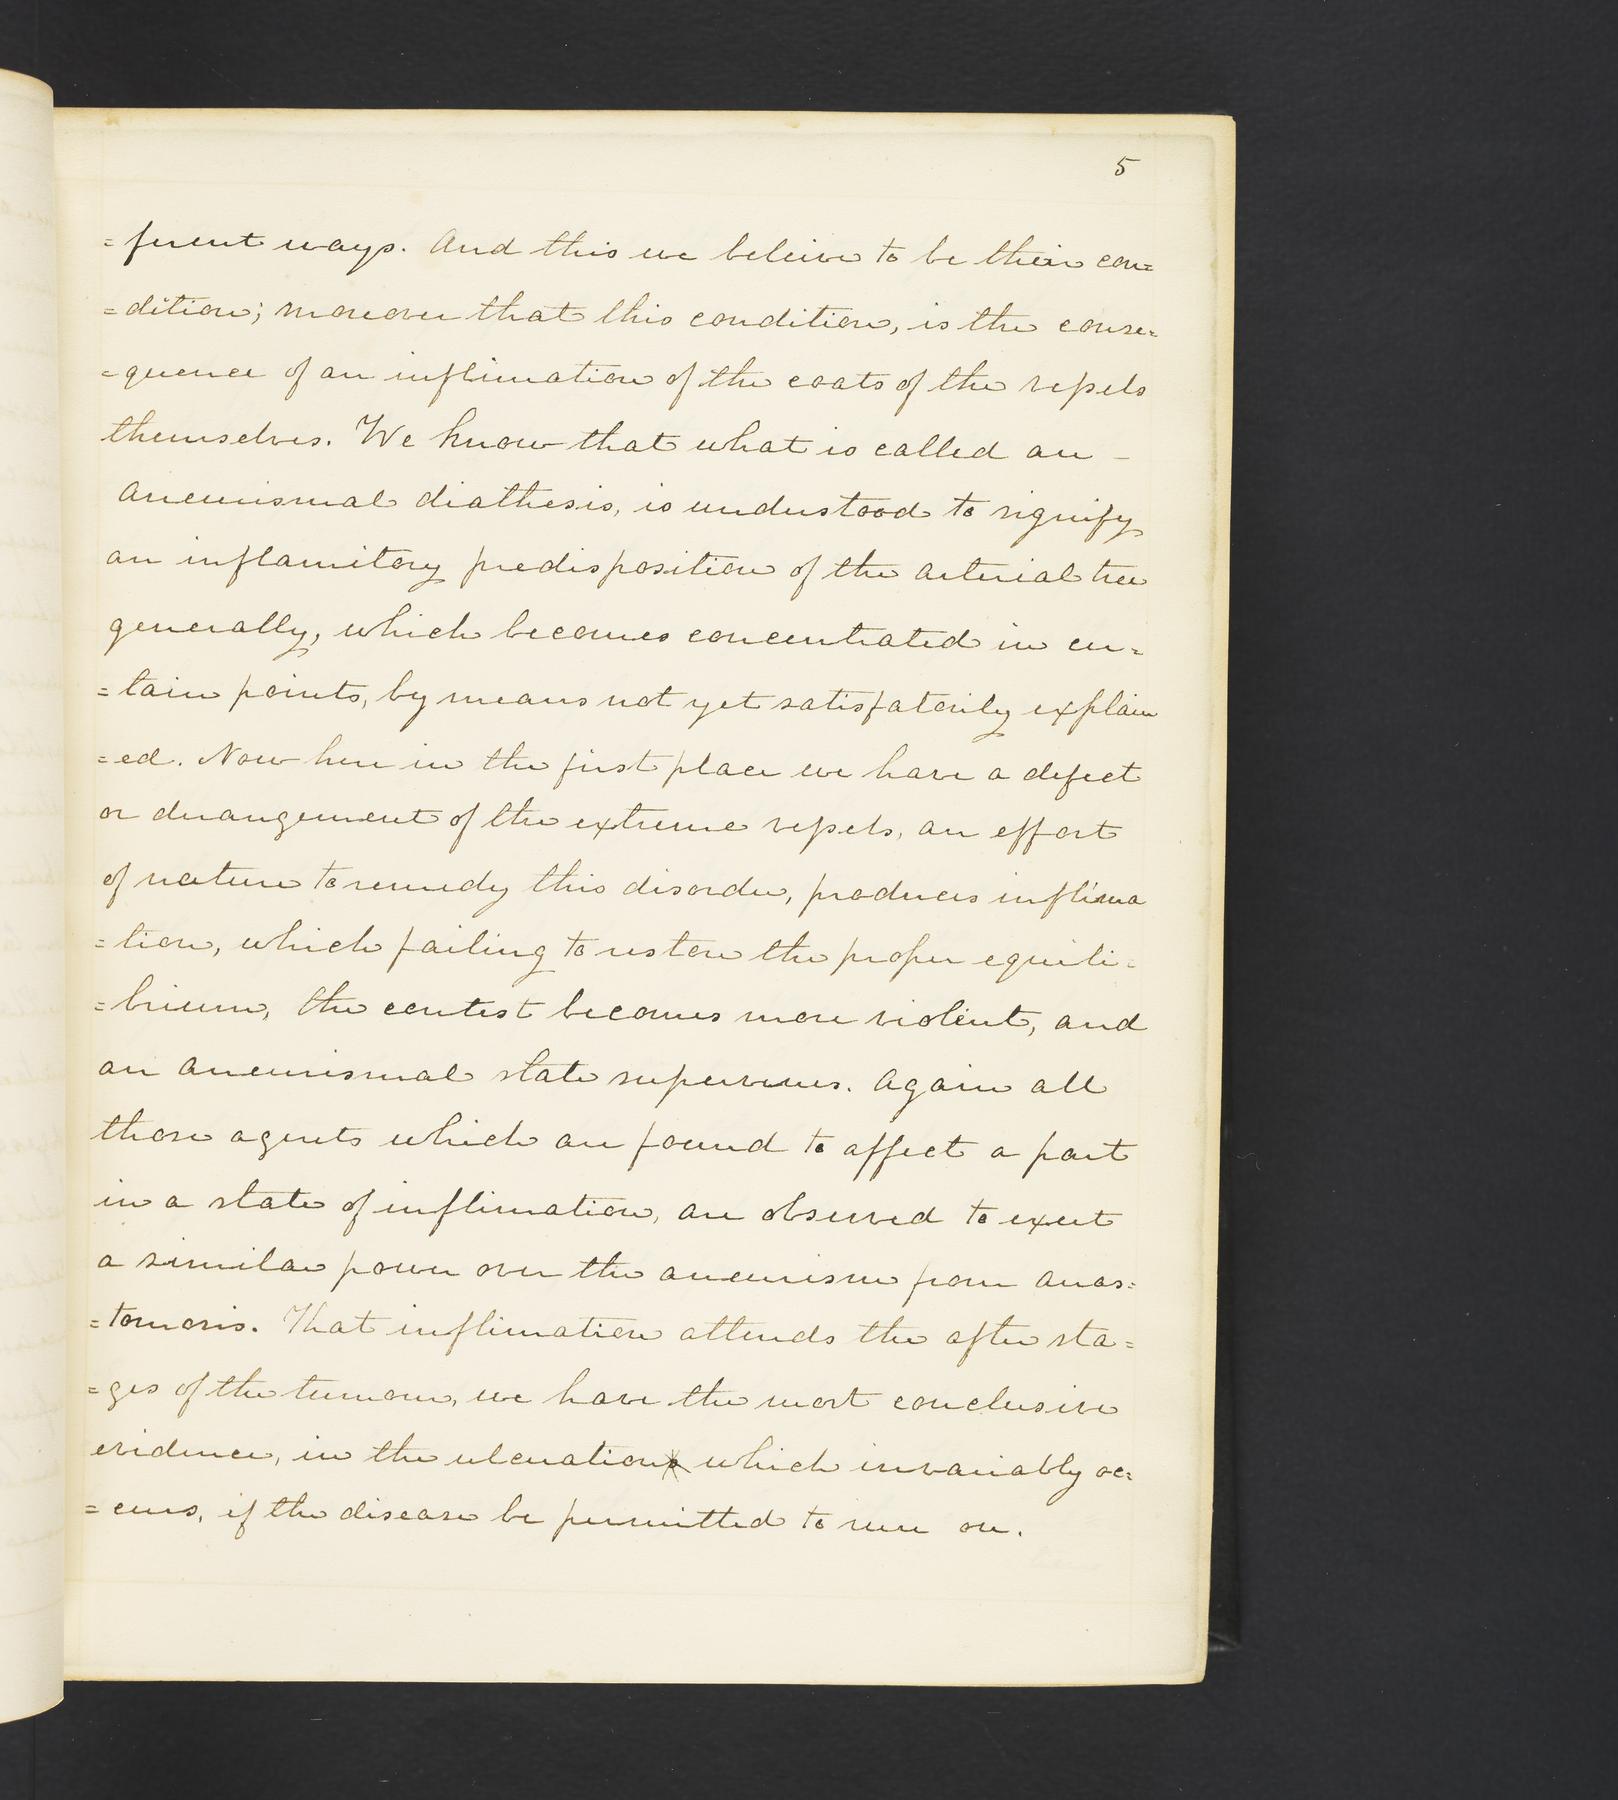 5
=ferent ways. And this we beleive to be their con=
=dition; moreover that this condition, is the conse=
=quence of an inflimation of the coats of the vessels
themselves. We know that what is called an -
aneurismal diathesis, is understood to signify
an inflamitory predisposition of the arterial tree
generally, which becomes concentrated in cer=
=tain points, by means not yet satisfatorily explain
=ed. Now here in the first place we have a defect
or derangement of the extreme vessels, an effort
of nature to remedy this disorder, produces inflima
=tion, which failing to restore the proper equili=
=brium, the contest becomes more violent, and
an aneurismal state supervenes. Again all
those agents which are found to affect a part
in a state of inflimation, are observed to exert
a similar power over the aneurism from anas=
=tomosis. That inflimation attends the after sta=
=ges of the tumour, we have the most conclusive
evidence, in the ulceration which invariably oc=
=curs, if the disease be permitted to run on.